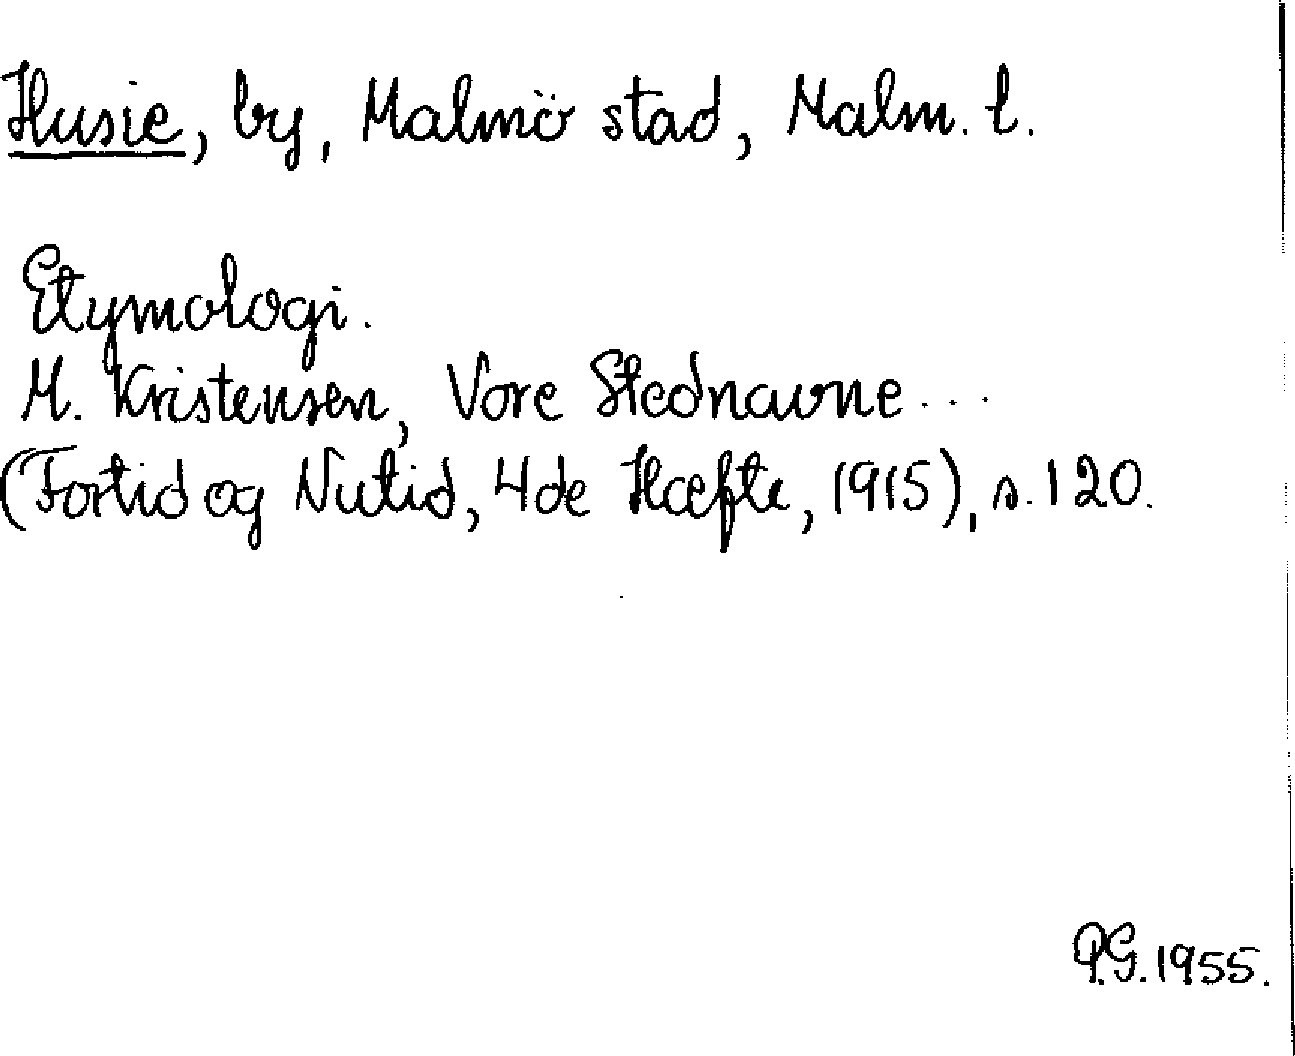 Husie, by, Malmö stad, Malm. l.
Etymologi.
M. Kristensen, Vore Stednavne ...
(Fortid og Nutid, 4de Hæfte, 1915), s. 120.
P.G. 1955.